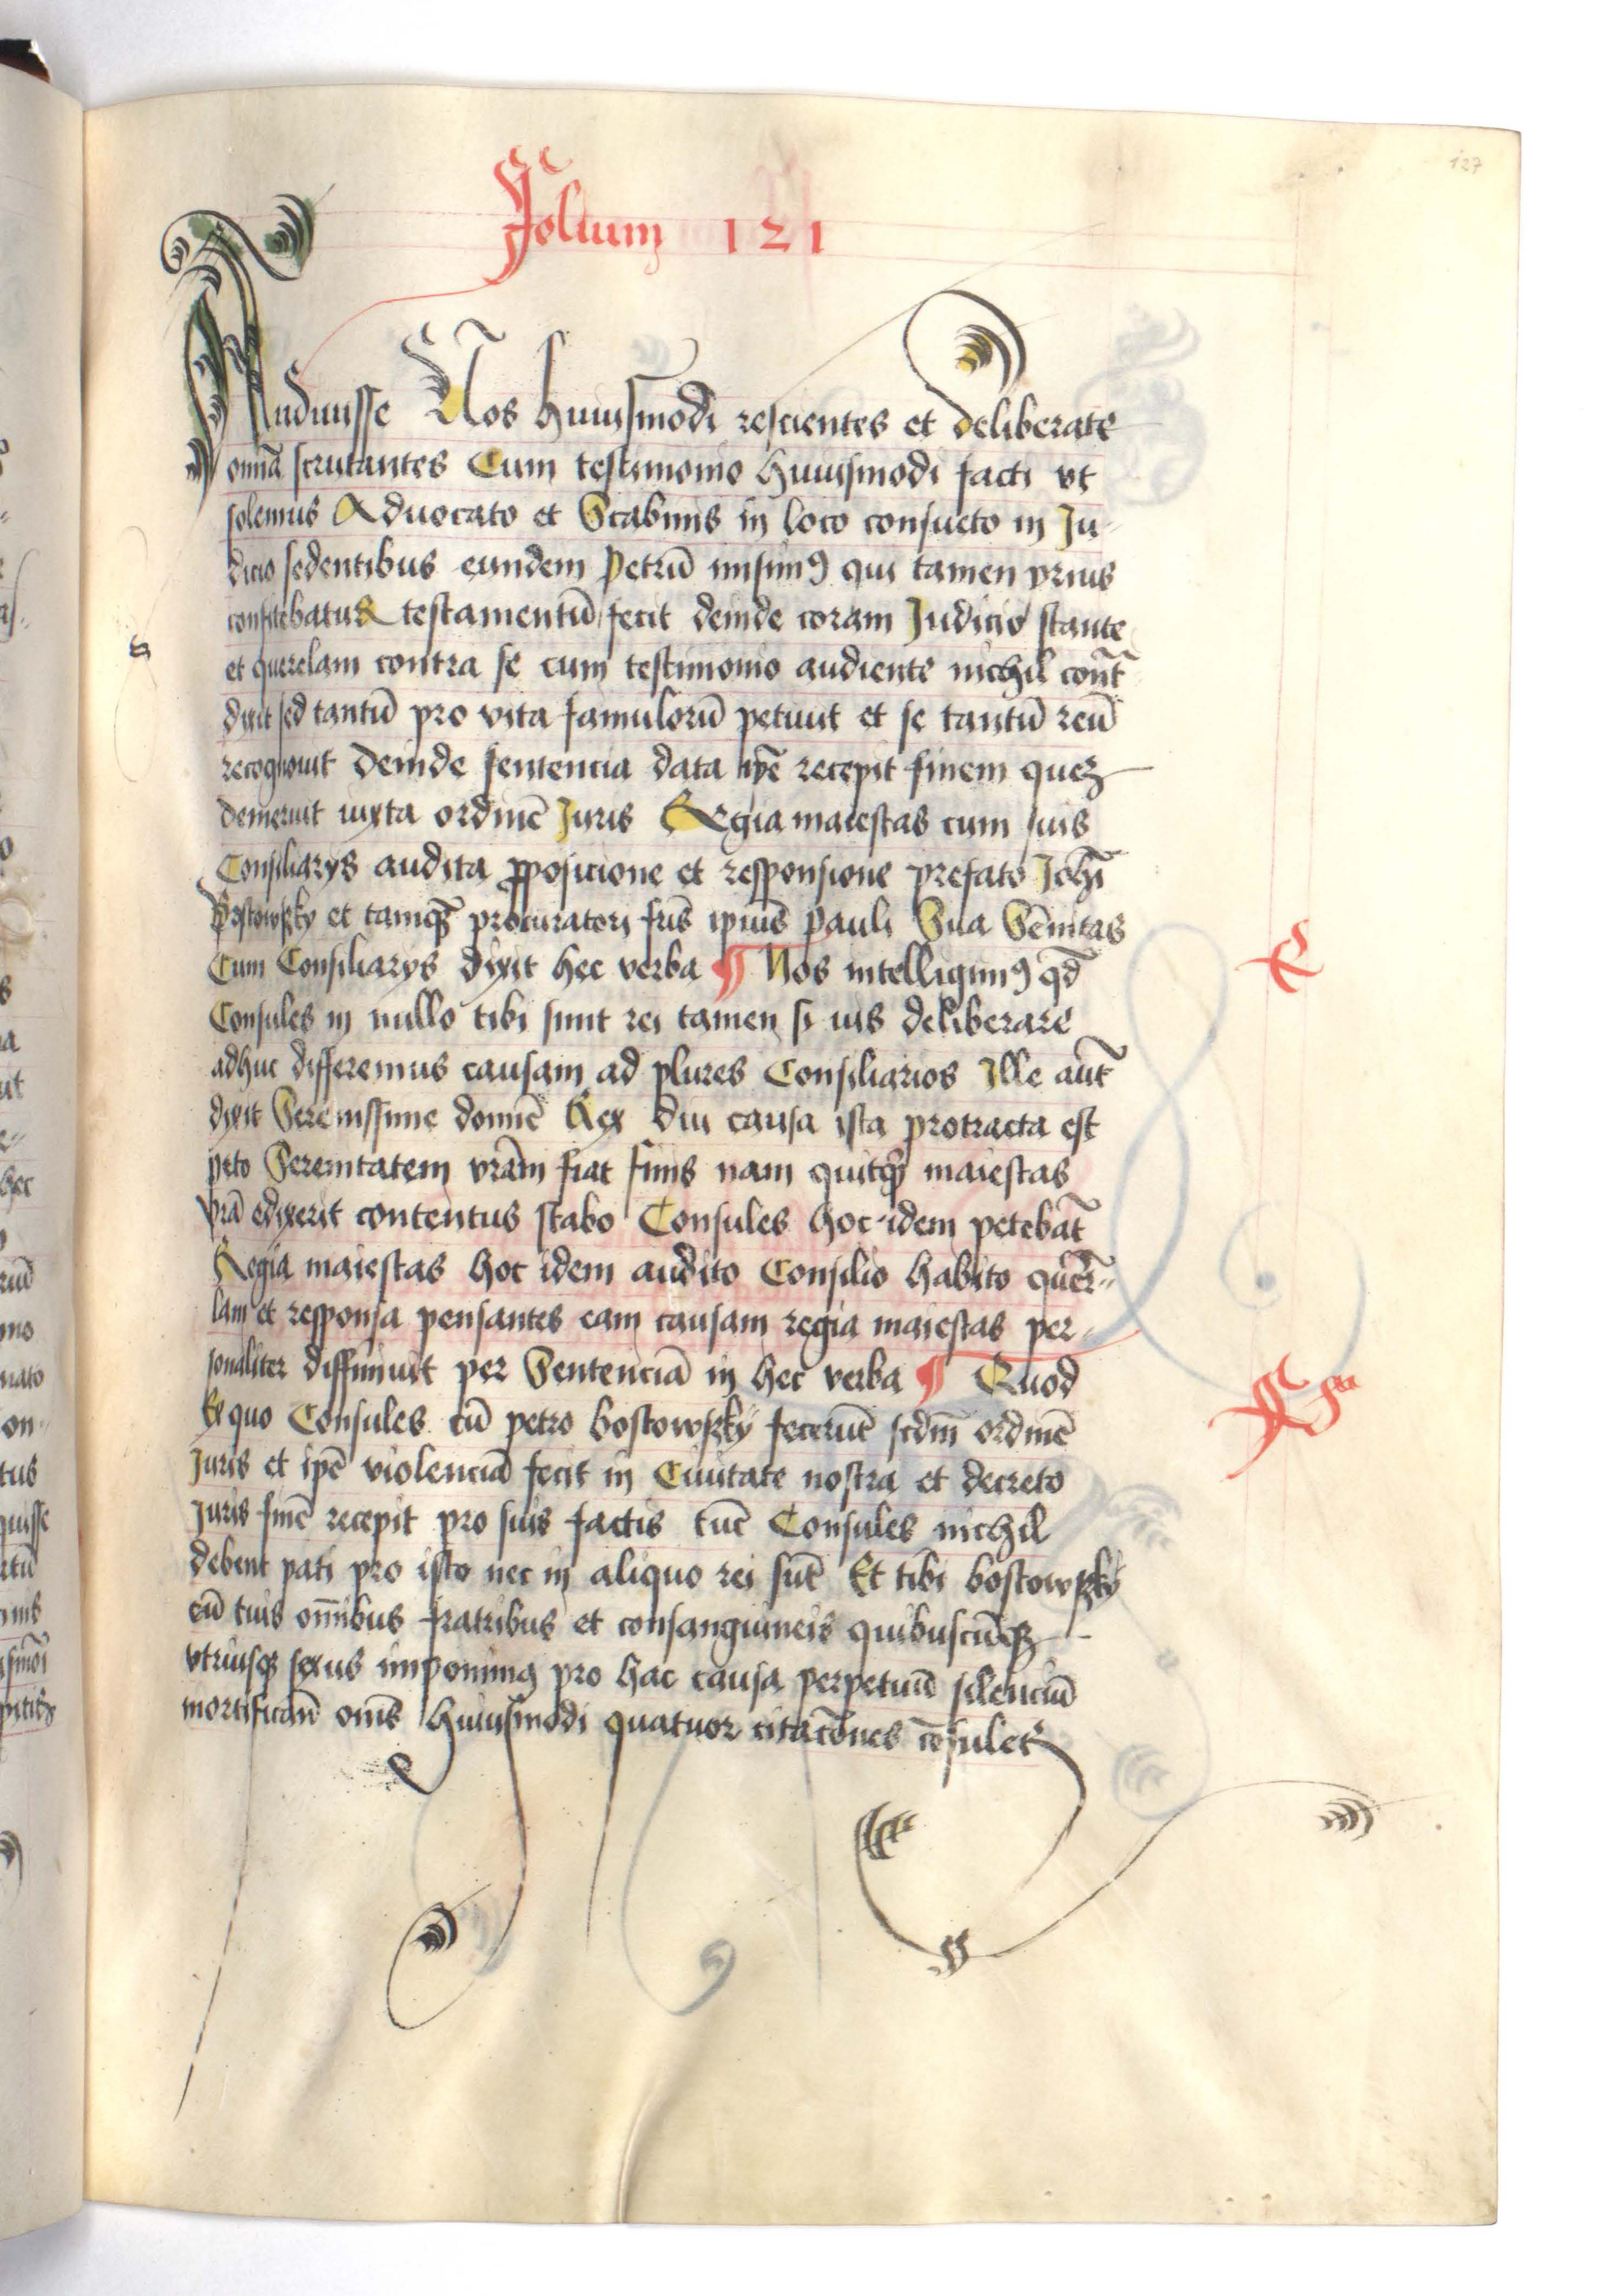 127
Folium 121
Audiuisse Nos huiusmodi rescientes et deliberate
omīa scrutantes Cum testimonio huiusmodi facti vt
solemus Aduocato et Scabinis in loco consueto in Ju-
dicio sedentibus eundem Petrū misimꝯ qui tamen prius
confitebatur testamentū fecit deinde coram Judicio stante
et querelam contra se cum testimonio audiente nichil cont̄
dixit sed tantū pro vita famulorū petiuit et se tantū reū
recognouit deinde sentencia data recepit finem queꝫ
demeruit iuxta ordinē Juris Regia maiestas cum suis
Consiliarys audita ꝓposicione et responsione prefato Joh̄i
Bostowsky et tamꝙ procuratori fr̄is ipius Pauli Sua Se͞nitas
Cum Consiliarys dixit hec verba ¶ Nos intelligimꝯ qd̄
Consules in nullo tibi sunt rei tamen si vis deliberare
adhuc differemus causam ad plures Consiliarios Ille aūt
dixit Serenissime domīe Rex diu causa ista protracta est
peto Serenitatem vrām fiat finis nam quitꝙ maiestas
vrā edixerit contentus stabo Consules hoc idem petebāt
Regia maiestas hoc idem audito Consilio habito quer̄-
lam et responsa pensantes eam causam regia maiestas per-
sonaliter diffiniuit per Sentenciā in hec verba ¶ Quod
Ex quo Consules cū petro bostowsky fecerūt scdm̄ ordinē
Juris et ipē violenciā fecit in Ciuitate nostra et decreto
Juris finē recepit pro suis factis tūc Consules nichil
debent pati pro isto nec in aliquo rei sūt Et tibi bostowsky
cū tuis om̄ibus fratribus et consanguineis quibuscūqꝫ
vtriusqꝫ sexus imponimꝯ pro hac causa perpetuū silenciū
mortifican̄ om̄s huiusmodi quatuor citacōnes cōsulet